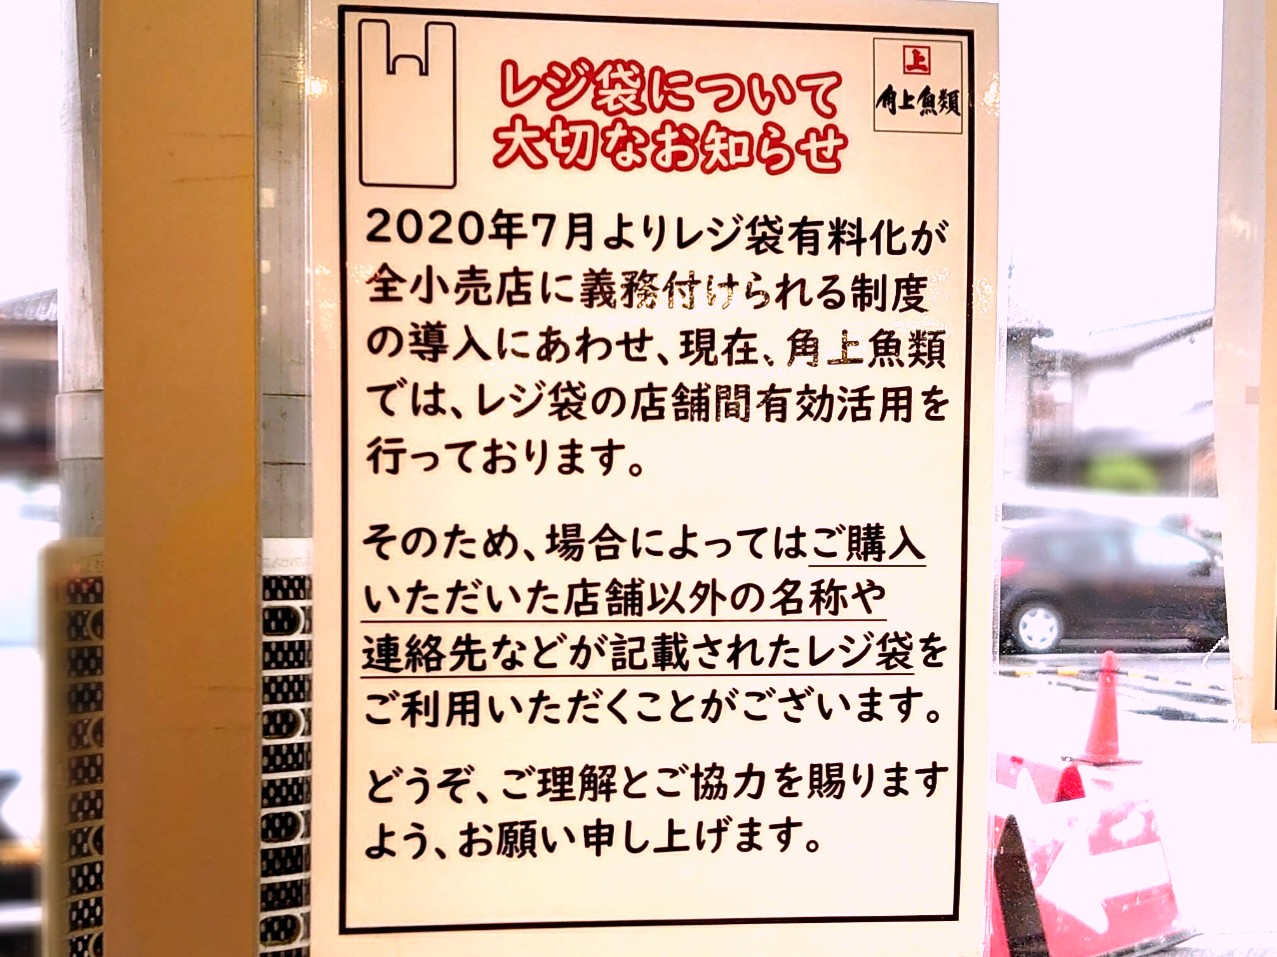 レジ袋について
大切なお知らせ
上
角上魚類
2020年7月よりレジ袋有料化が
全小売店に義務付けられる制度
の導入にあわせ、現在、角上魚類
では、レジ袋の店舗間有効活用を
行っております。
そのため、場合によってはご購入
いただいた店舗以外の名称や
連絡先などが記載されたレジ袋を
ご利用いただくことがございます。
どうぞ、ご理解とご協力を賜ります
よう、お願い申し上げます。